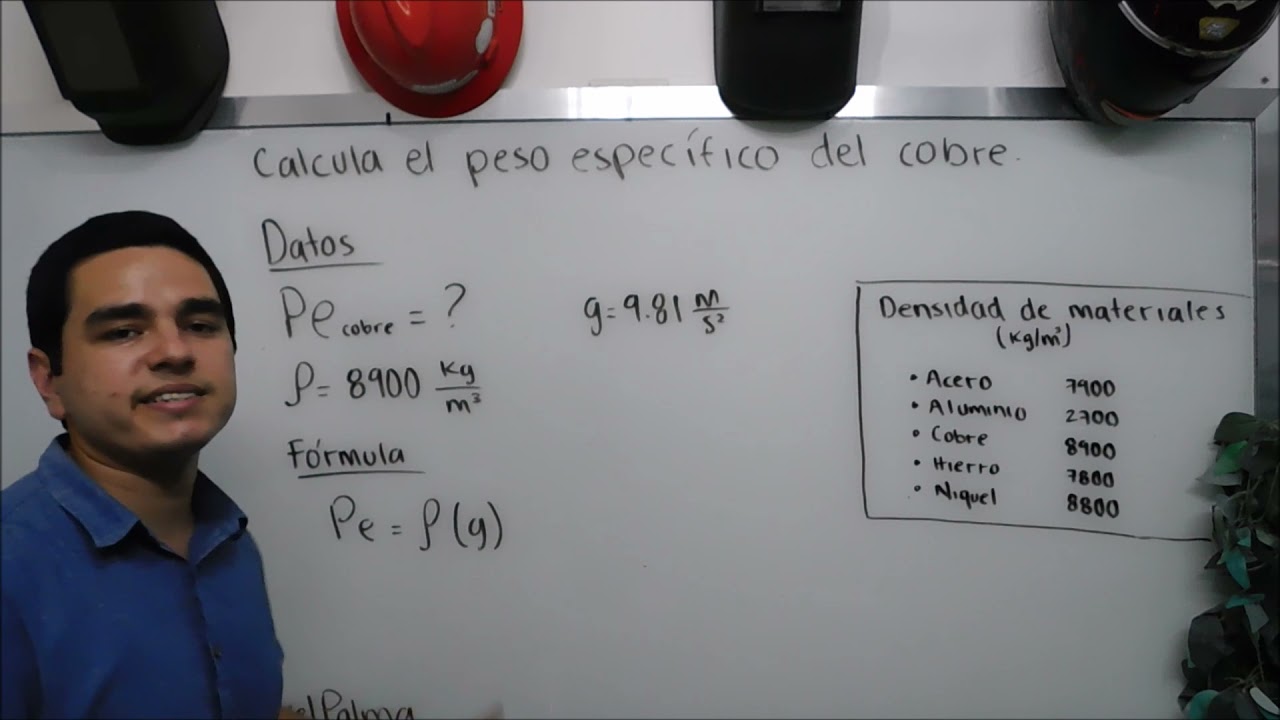 Calcula el peso específico del cobre.
Datos
Pe cobre = ?
g = 9.81 m/s²
ρ = 8900 kg/m³
Fórmula
Pe = ρ(g)
Densidad de materiales
(kg/m³)
• Acero 7900
• Aluminio 2700
• Cobre 8900
• Hierro 7800
• Niquel 8800
elPalma